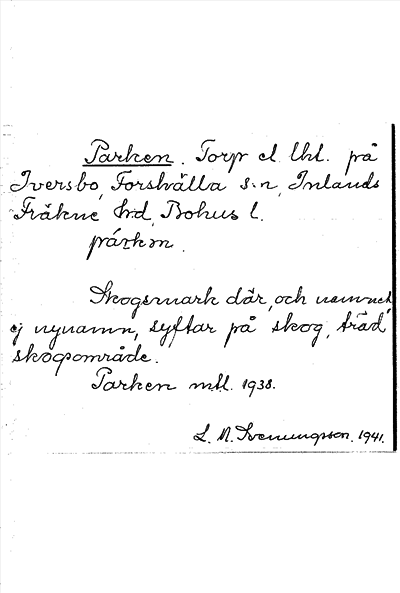 Parken. Torp el. lht. på
Iversbo, Forshälla s:n, Inlands
Fräkne hd, Bohus l.
párkɷn.
Skogsmark där, och namnet
ej nynamn, syftar på skog, träd,
skogsområde.
Parken mtl. 1938.
L. M. Svenungsson. 1941.